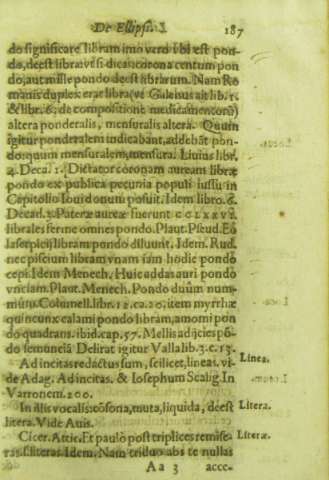 De Ellipsi. 187
do significare libram imo vero vbi est pon-
do, deest libra: vt si dicas corona centum pon
do, aut mille pondo deest librarum. Nam Ro
manis duplex erat libra (vt Galenus ait lib. 1.
& libr. 6. de compositione medicamentorū)
altera ponderalis, mensuralis altera. Quum
igitur ponderalem indicabant, addebāt pon-
do: quum mensuralem, mensura. Liuius libr.
4. Deca. 1. Dictator coronam auream libræ
pondo ex publica pecunia populi iussu in
Capitolio Ioui donum posuit. Idem libro. 6.
Decad. 3. Pateræ aureæ fuerunt CCLXXVI.
librales ferme omnes pondo. Plaut. Pseud. Eò
laserpicij libram pondo diluunt. Idem. Rud.
nec piscium libram vnam ſam hodie pondò
cepi. Idem Menech. Huic addas auri pondò
vnciam. Plaut. Menech. Pondo duûm num-
mûm. Columell. libr. 12. ca. 20. item myrrhæ
quincunx calami pondo libram, amomi pon
do quadrans. ibid. cap. 57. Mellis adijcies pō-
do semunciā. Delirat igitur Valla lib. 3. c. 13.
Ad incitas redactus sum, scilicet, lineas. vi- Linea.
de Adag. Ad incitas. & Iosephum Scalig. In
Varronem. 200.
In illis vocalis: cōsona, muta, liquida, deest Litera.
litera. Vide Auis.
Cicer. Attic. Et paulò post triplices remise- Literæ.
ras. s. literas. Idem. Nam triduo abs te nullas
Aa 3 acce-